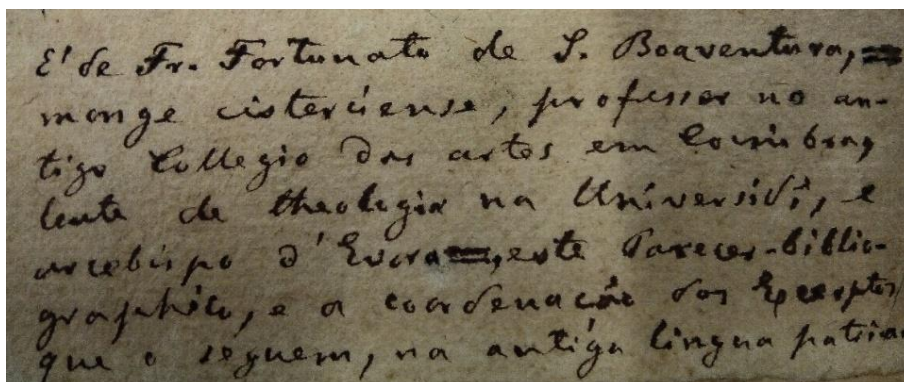 E' de Fr. Fortunato de S. Boaventura,
monge cisterciense, professor no an-
tigo Collegio das artes em Coimbra,
lente de theologia na Universid.ͤ, e
arcebispo d'Evora, este Parecer-biblio-
graphico, e a coordenação dos Excerptos
que o seguem, na antiga lingua patria